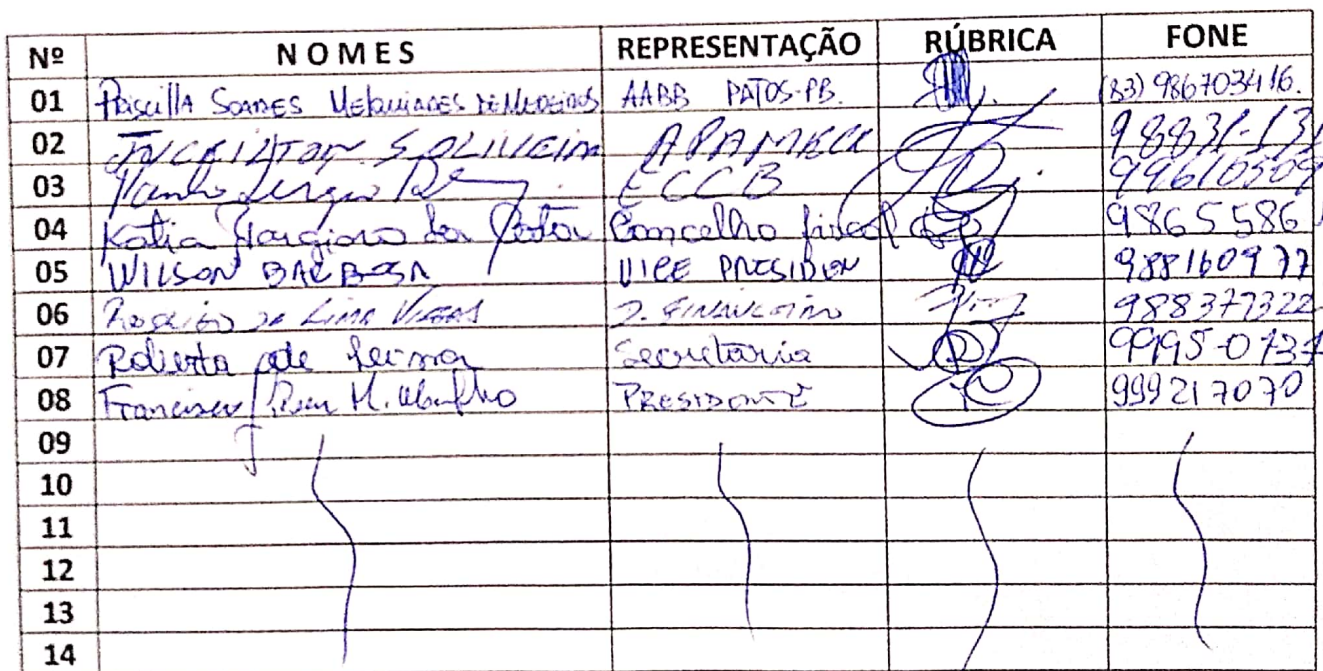 Nº NOMES REPRESENTAÇÃO RÚBRICA FONE
01 Priscilla Soares Melquiades de Medeiros AABB PATOS-PB. (83) 986703416.
02 JUCEILTON S. OLIVEIRA 98831-131
03 Sergio ECCB 996610509
04 Katia da Costa Concelho fiscal 9865586
05 WILSON BARBOSA VICE PRESIDEN 988160977
06 de Lima 2. 988377322
07 Roberta de Secretaria 99950737
08 Francisco M. PRESIDENTE 999217070
09
10
11
12
13
14